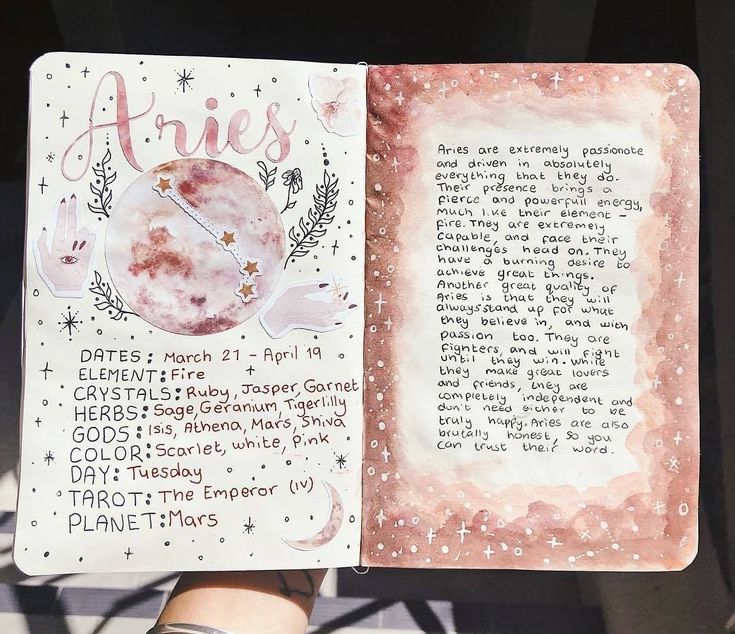 Aries
DATES: March 21 - April 19
ELEMENT: Fire
CRYSTALS: Ruby, Jasper, Garnet
HERBS: Sage, Geranium, Tigerlilly
GODS: Isis, Athena, Mars, Shiva
COLOR: Scarlet, white, Pink
DAY: Tuesday
TAROT: The Emperor (IV)
PLANET: Mars
Aries are extremely passionate
and driven in absolutely
everything that they do.
Their presence brings a
fierce and powerfull energy,
much like their element -
fire. They are extremely
capable, and face their
challenges head on. They
have a burning desire to
achieve great things.
Another great quality of
Aries is that they will
always stand up for what
they believe in, and with
passion too. They are
fighters, and will fight
until they win. While
they make great lovers
and friends, they are
completely independent and
don't need either to be
truly happy. Aries are also
brutally honest, so you
can trust their word.